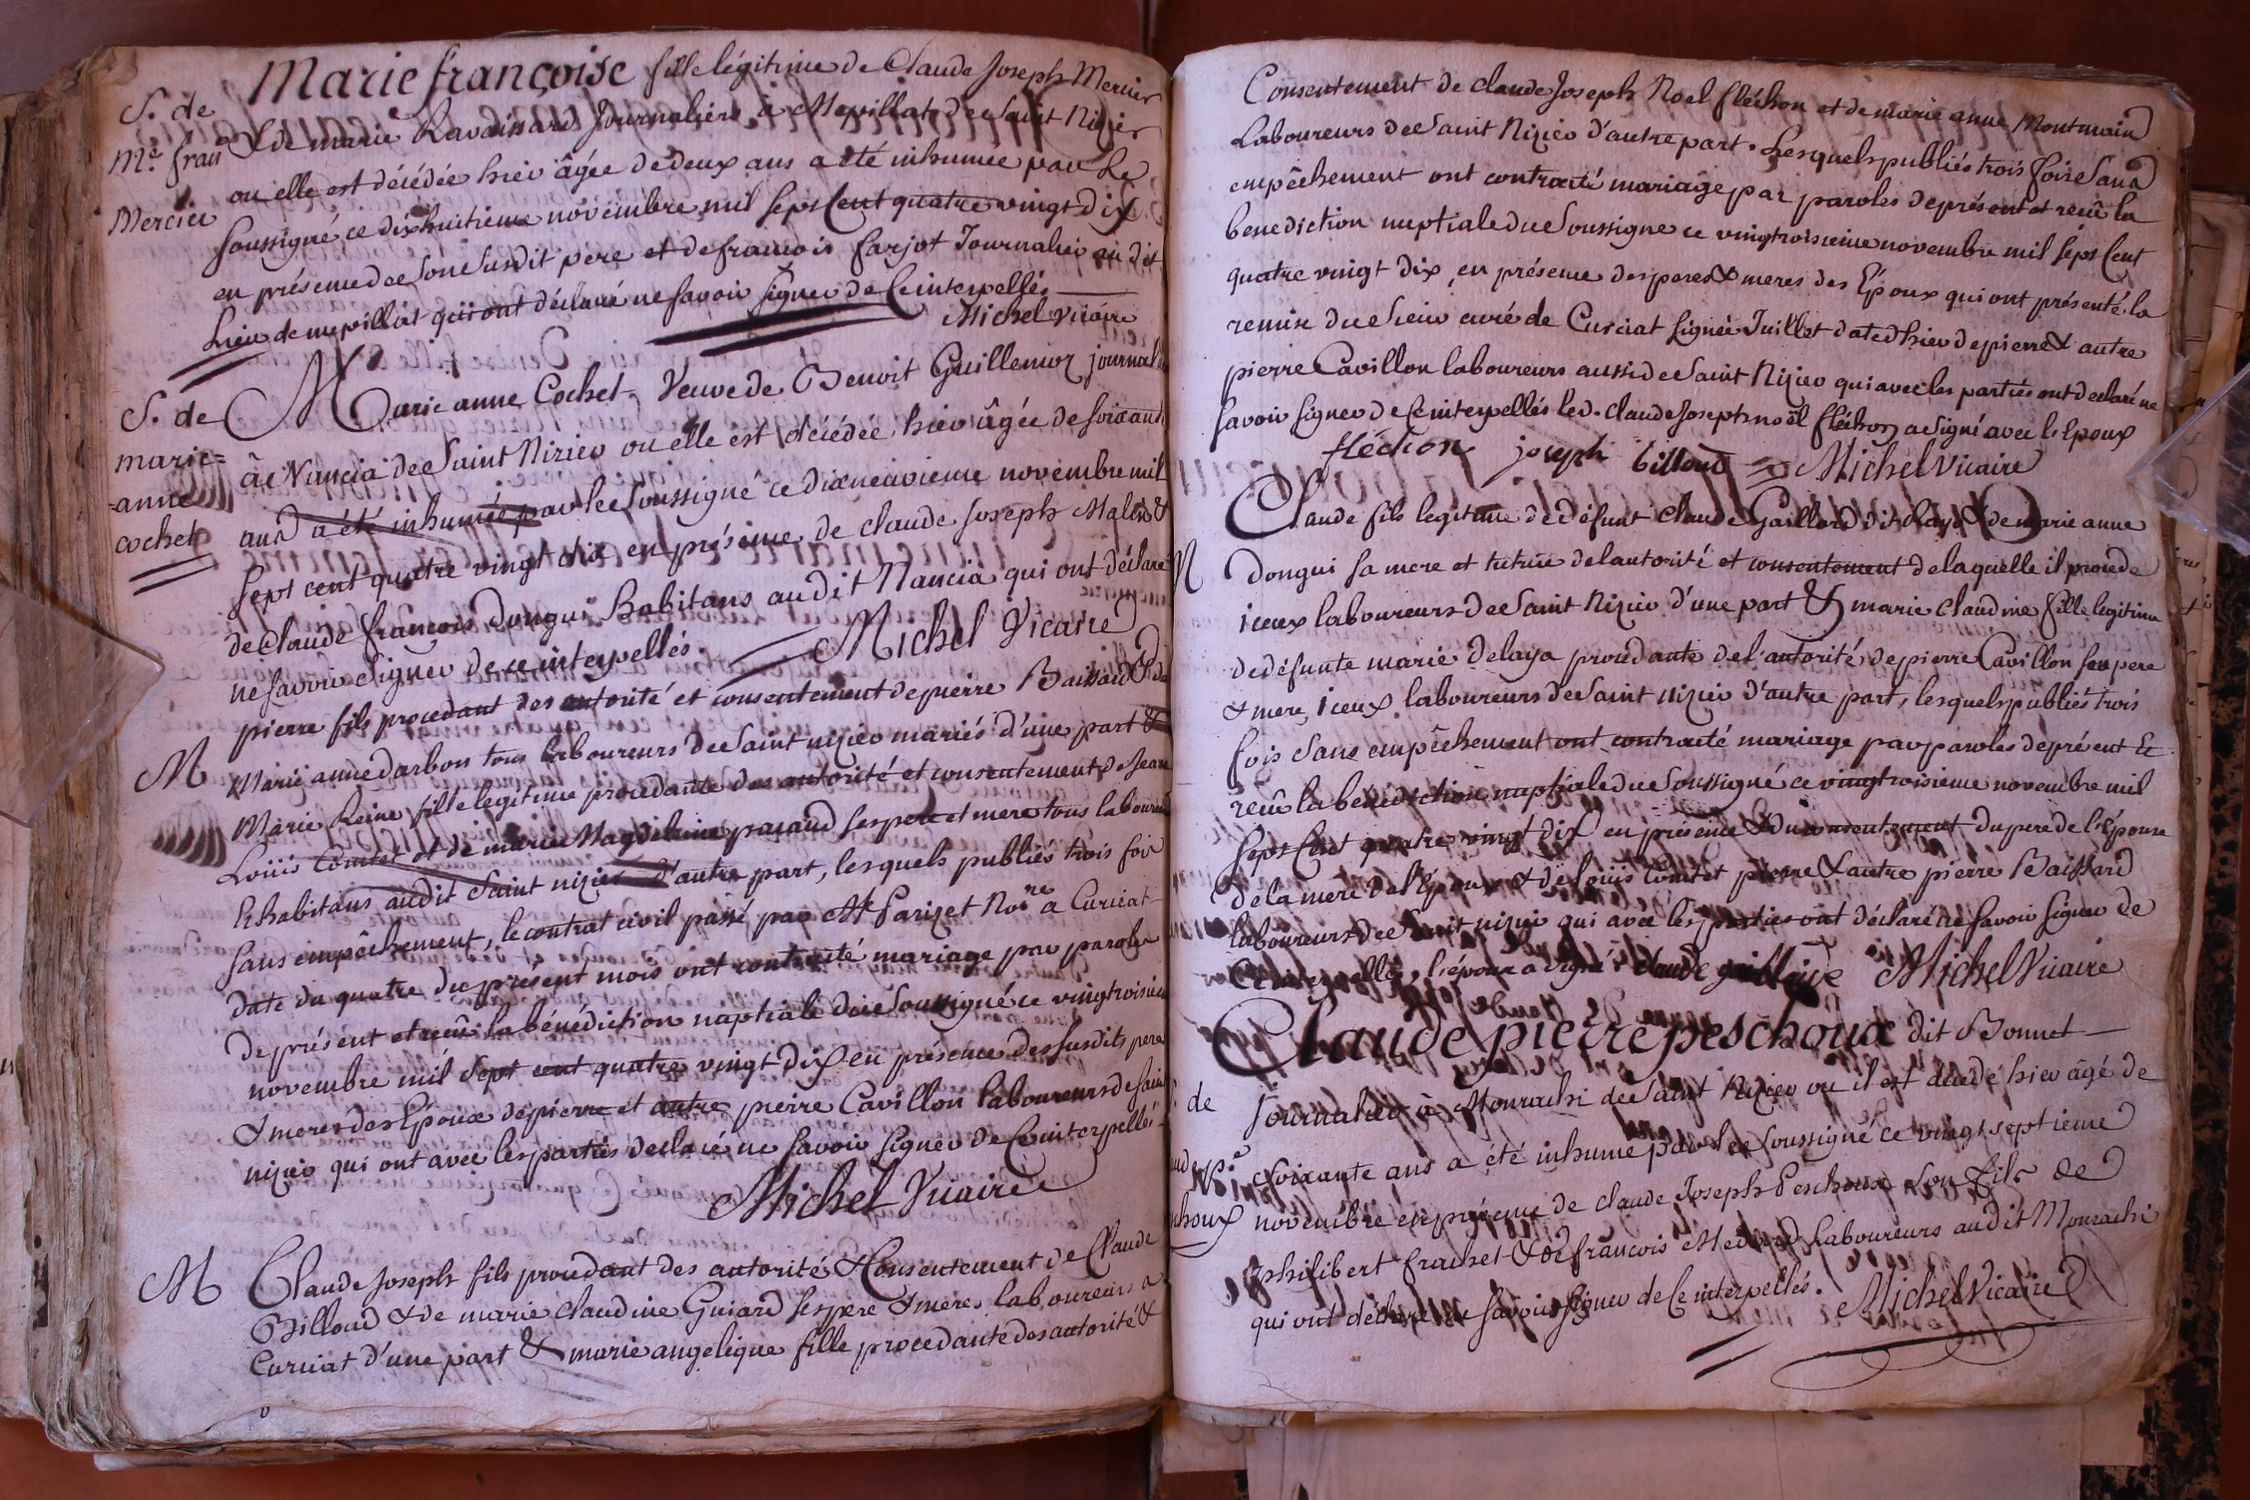 Marie françoise fille légitime de Claude Joseph Mercier
S. de
& de marie Ravaissard Journaliers à Mepillat de Saint Nizier
Me. fran
ou elle est décédée hier âgée de deux ans a été inhumée par le
Mercier
soussigné ce dixhuitieme novembre mil sept Cent quatre vingt dix
en présence de son susdit pere et de francois farjot Journalier au dit
Lieu de mepillat qui ont déclaré ne savoir signer de Ce interpellés
Michel Vicaire
Marie anne Cochet, Veuve de Benoit Guillemoz journal
S. de
marie=
=anne
cochet
à Nancia de Saint Nizier ou elle est décédée hier âgée de soixante
ans a été inhumée par le soussigné ce dixneuvieme novembre mil
sept cent quatre vingt dix en présence de claude Joseph Malin &
de Claude françois Dongui habitans audit Nancia qui ont déclaré
ne savoir signer de ce interpellés. Michel Vicaire
pierre fils procedant des autorité et consentement de pierre Baissard & de
M
Marie anne darbon tous laboureurs de Saint nizier mariés d'une part &
Marie Reine fille legitime procedante des autorité et consentement de Jean
Loüis Comtet et de marie Magdeleine paraud ses pere et mere tous laboureurs
& habitans audit Saint nizier d'autre part, lesquels publiés trois fois
sans empêchement, le contrat civil passé par Me farizet Nore à Curciat
date du quatre du présent mois ont contracté mariage par paroles
de présent et recû la bénédiction nuptiale du Soussigné ce vingtroisieme
novembre mil sept cent quatre vingt dix en présence des susdits peres
& meres des Epoux de pierre et autre pierre Cavillon laboureurs de saint
nizier qui ont avec les parties declaré ne savoir signer de Ce interpellés
Michel Vicaire
M
Claude Joseph fils procedant des autorité & Consentement de Claude
Billoud & de marie Claudine Guiard ses pere & mere laboureurs a
Curciat d'une part & marie angelique fille procedante des autorité &
Consentement de claude Joseph Noel fléchon et de marie anne Montmain
Laboureurs de Saint Nizier d'autre part. Lesquels publiés trois fois Sans
empêchement ont contracté mariage par paroles de présent et recû la
benediction nuptiale du Soussigné ce vingtroisieme novembre mil sept Cent
quatre vingt dix, en présence des peres & meres des Epoux qui ont présenté la
remise du sieur curé de Curciat signée Juillet datée d'hier de pierre & autre
pierre Cavillon laboureurs aussi de Saint Nizier qui avec les parties ont declaré ne
savoir signer de Ce interpellés led. claude Joseph noël fléchon a signé avec l'Epoux
fléchon joseph billoud Michel Vicaire
Claude fils legitime de défunt Claude Gaillard dit & de marie anne
M
dongui sa mere et tutrice de l'autorité et consentement de laquelle il procede
iceux laboureurs de Saint Nizier d'une part & marie claudine fille legitime
de défunte marie Delaya procedante de l'autorité de pierre Cavillon son pere
& mere, iceux laboureurs de Saint nizier d'autre part, lesquels publiés trois
fois Sans empêchement ont contracté mariage par paroles de présent &
recû la benediction nuptiale du Soussigné ce vingtroisieme novembre mil
sept Cent quatre vingt dix en présence & du consentement du pere de l'Epouse
de la mere de l'Epoux & de Loüis Comtet pierre & autre pierre Baissard
laboureurs de Saint nizier qui avec les parties ont déclaré ne savoir signer de
Ce interpellés, l'époux a signé. Claude Michel Vicaire
Claude pierre peschoux dit Bonnet
de
journalier à Mourachi de Saint Nizier ou il est décédé hier âgé de
soixante ans a été inhumé par le soussigné ce vingt septieme
choux
novembre en présence de claude Joseph Peschoux son fils de
philibert frachet & de françois Laboureurs audit Mourachi
qui ont déclaré ne savoir signer de Ce interpellés. Michel Vicaire